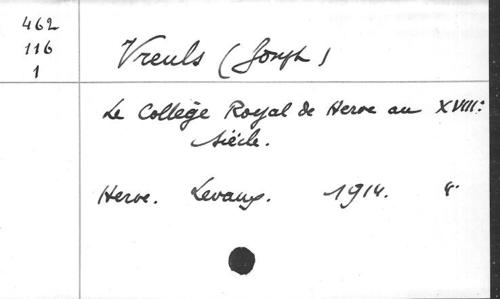 462
116
1
Vreuls (Joseph)
Le Collège Royal de Herve au XVIII:
siècle.
Herve. Levaux. 1914.